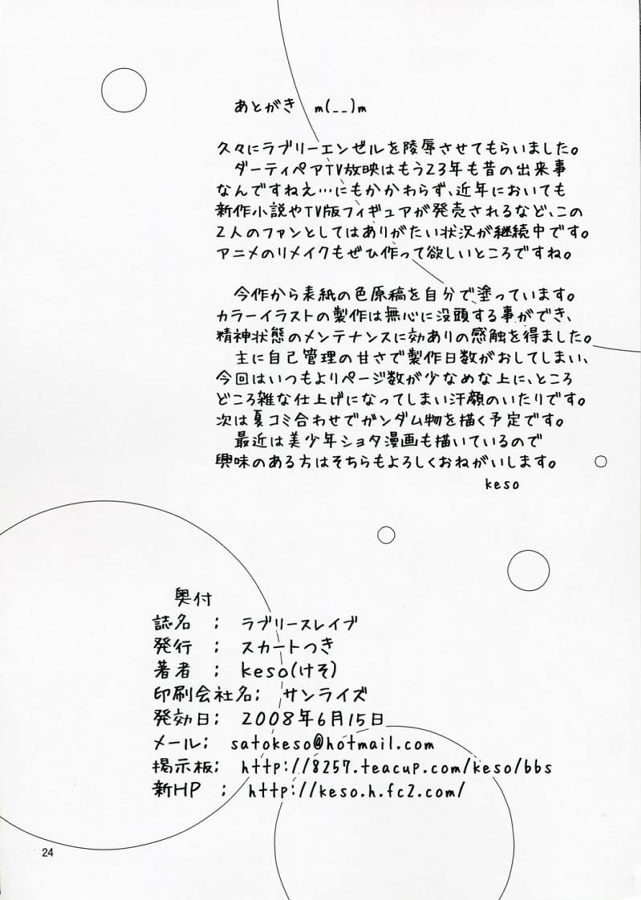 あとがき　m(__)m
久々にラブリーエンゼルを陵辱させてもらいました。
ダーティペアTV放映はもう23年も昔の出来事
なんですねえ…にもかかわらず、近年においても
新作小説やTV版フィギュアが発売されるなど、この
2人のファンとしてはありがたい状況が継続中です。
アニメのリメイクもぜひ作って欲しいところですね。
今作から表紙の色原稿を自分で塗っています。
カラーイラストの製作は無心に没頭する事ができ、
精神状態のメンテナンスに効ありの感触を得ました。
主に自己管理の甘さで製作日数がおしてしまい、
今回はいつもよりページ数が少なめな上に、ところ
どころ雑な仕上げになってしまい汗顔のいたりです。
次は夏コミ合わせでガンダム物を描く予定です。
最近は美少年ショタ漫画も描いているので
興味のある方はそちらもよろしくおねがいします。
keso
奥付
誌名　;　ラブリースレイブ
発行　;　スカートつき
著者　;　keso(けそ)
印刷会社名;　サンライズ
発効日;　2008年6月15日
メール;　satokeso@hotmail.com
掲示板;　http://8257.teacup.com/keso/bbs
新HP　;　http://keso.h.fc2.com/
24